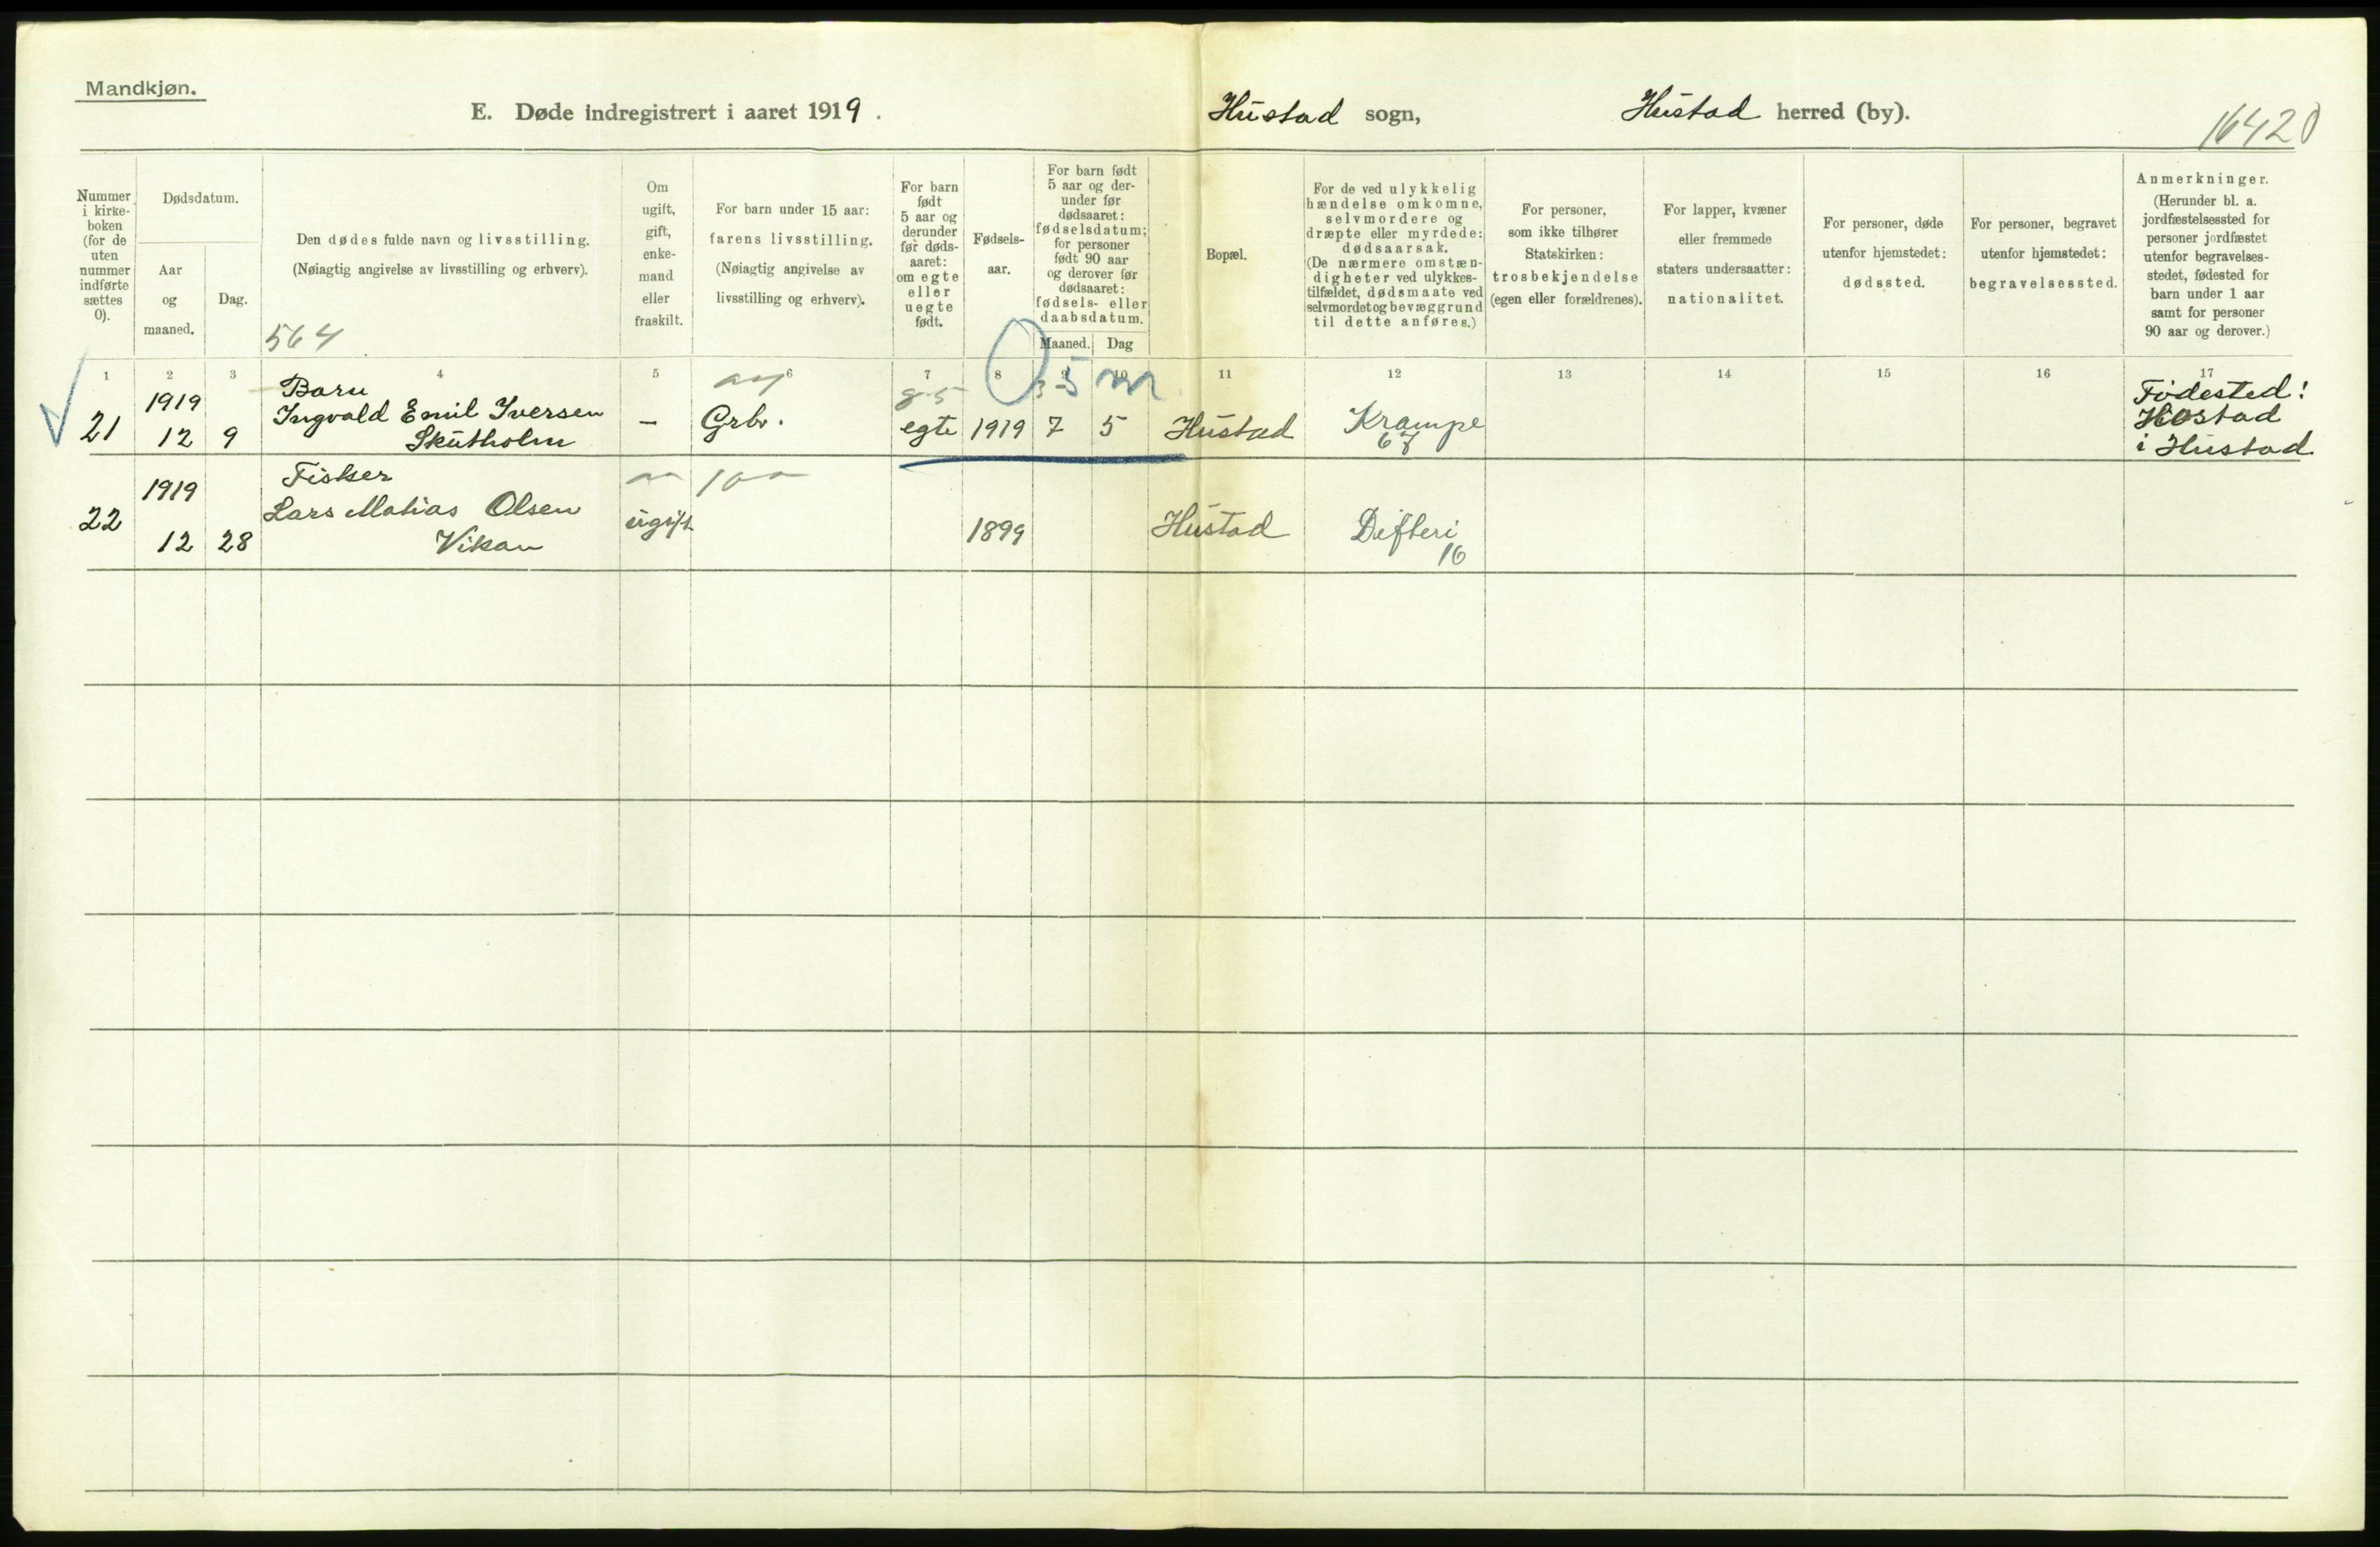 Mandkjøn.
E. Døde indregistrert i aaret 1919.
Hustad sogn,
Hustad herred (by).
16420
Nummer
i kirke-
boken
(for de
uten
nummer
indførte
sættes
0).
Dødsdatum.
Aar
og
maaned.
Dag.
Den dødes fulde navn og livsstilling.
(Nøiagtig angivelse av livsstilling og erhverv).
564
Om
ugift,
gift,
enke-
mand
eller
fraskilt.
For barn under 15 aar:
farens livsstilling.
(Nøiagtig angivelse av
livsstilling og erhverv).
For barn
født
5 aar og
derunder
før døds-
aaret:
om egte
eller
uegte
født.
Fødsels-
aar.
For barn født
5 aar og der-
under før
dødsaaret:
fødselsdatum;
for personer
født 90 aar
og derover før
dødsaaret:
fødsels- eller
daabsdatum.
Maaned. Dag
Bopæl.
For de ved ulykkelig
hændelse omkomne,
selvmordere og
dræpte eller myrdede:
dødsaarsak.
(De nærmere omstæn-
digheter ved ulykkes-
tilfældet, dødsmaate ved
selvmordet og bevæggrund
til dette anføres.)
For personer,
som ikke tilhører
Statskirken:
trosbekjendelse
(egen eller forældrenes).
For lapper, kvæner
eller fremmede
staters undersaatter:
nationalitet.
For personer, døde
utenfor hjemstedet:
dødssted.
For personer, begravet
utenfor hjemstedet:
begravelsessted.
Anmerkninger.
(Herunder bl. a.
jordfæstelsessted for
personer jordfæstet
utenfor begravelses-
stedet, fødested for
barn under 1 aar
samt for personer
90 aar og derover.)
1 2 3 4 5 6 7 8 9 10 11 12 13 14 15 16 17
5 m
21
1919
12 9
Barn
Ingvald Emil Iversen
Skutholm
–
Grbr.
egte 1919 7 5
Hustad
Krampe
67
Fødested:
Hostad
i Hustad
22
1919
12 28
Fisker
Lars Matias Olsen
Vikan
ugift
1899
Hustad
Difteri
10